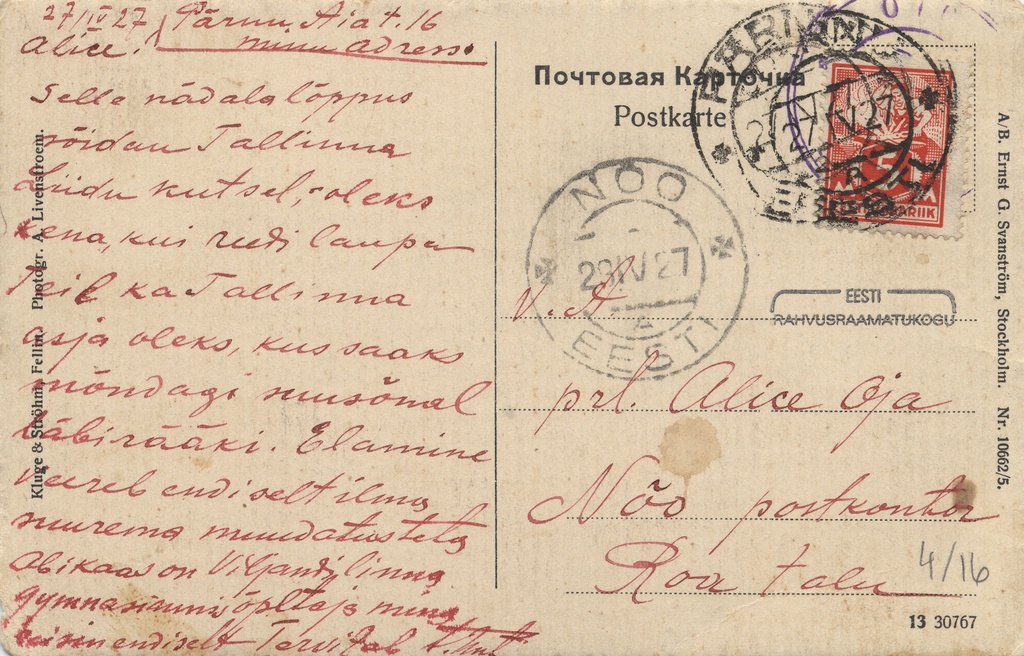 27/IV 27 Pärnu, Aia t. 16
Alice. minu adress.
Selle nädala lõppus
sõidan Tallinna
Liidu kutsel, oleks
kena, kui reedi laupä
Teil ka Tallinna
asja oleks, kus saaks
mõndagi suusõnal
läbirääki. Elamine
veereb endiselt ilma
suurema muudatusteta
Abikaas on Viljandi linna
gymnasiumi õpetaja, mina
endiselt Tervitab
Kluge & Ströhm, Fellin. Photogr. A. Livenstroem.
Почтовая Карточка
Postkarte
PÄRNU
27 IV 27
EESTI
NÕO
28 IV 27
A
EESTI
5
EESTI
RAHVUSRAAMATUKOGU
V. A.
prl. Alice Oja
Nõo postkontor
Roa talu
4/16
13 30767
A/B. Ernst G. Svanström, Stockholm. Nr. 10662/5.